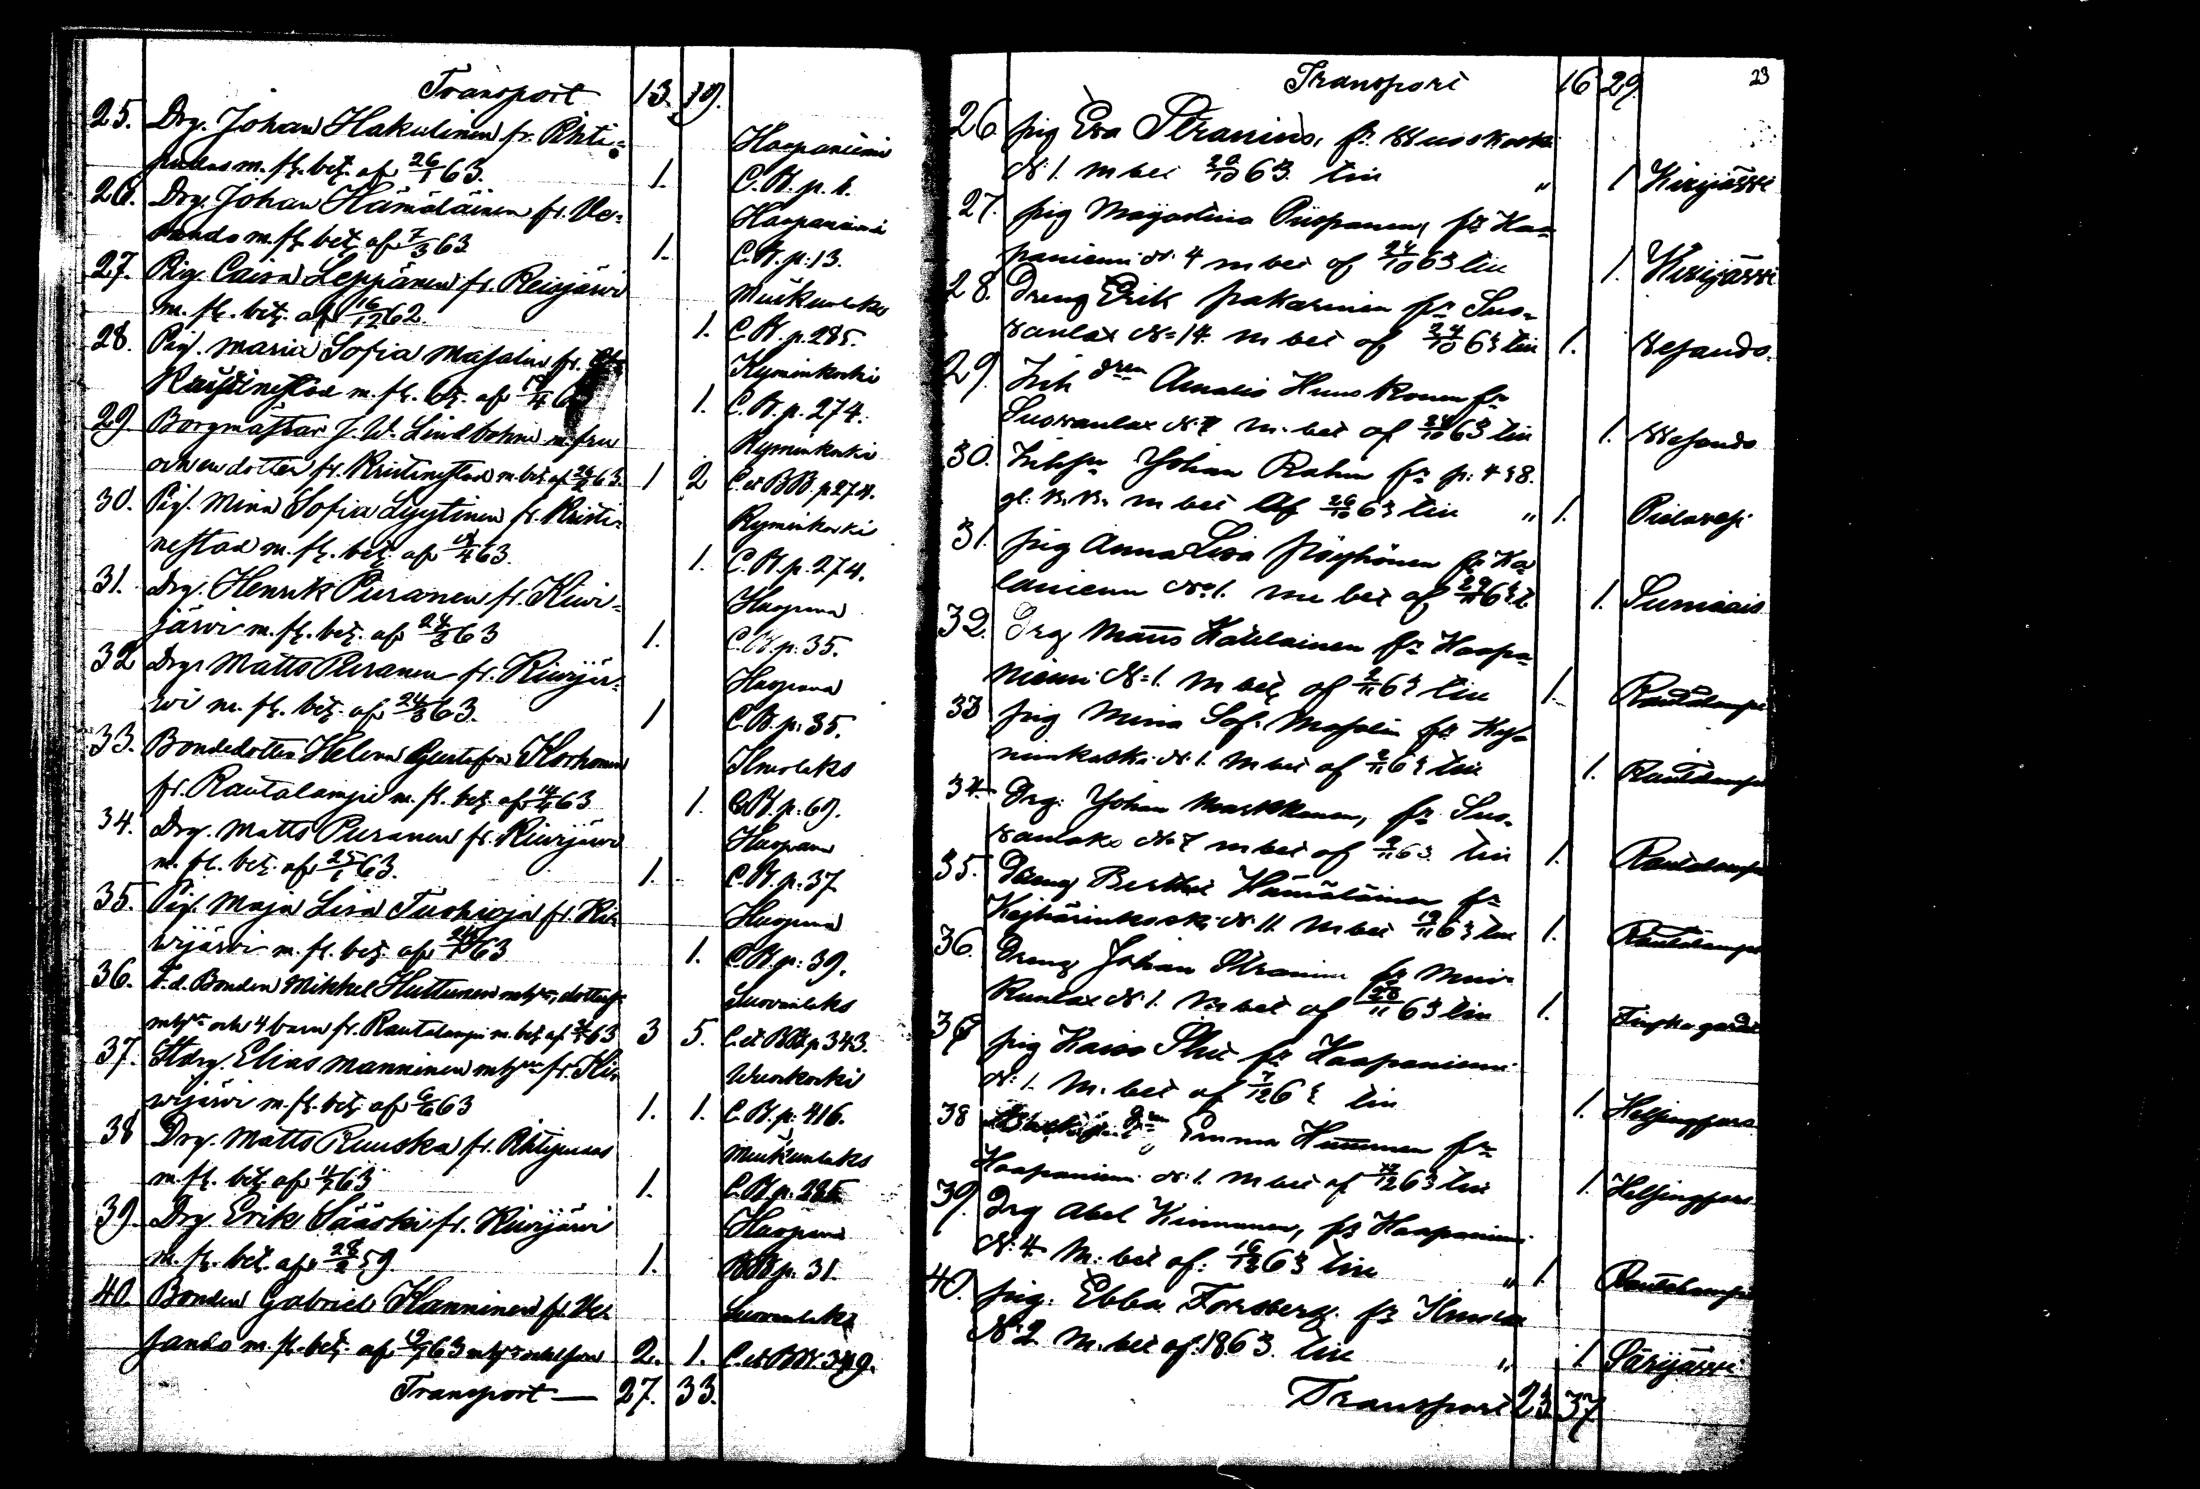 Transport 13. 19.
25. Drg. Johan Hakulinen fr. Pihti=
pudas m. fl. bet. af 26/1 63. 1. Haapaniemi
C.B. p. 1.
26. Drg. Johan Hämäläinen fr. Ve=
sando m. fl. bet. af 7/3 63 1. Haapaniemi
C.B. p. 13.
27. Pig. Caisa Leppänen fr. Reisjärvi
m. fl. bet. af 16/12 62. 1. Muikunlaks
C.B. p. 285.
28. Pig. Maria Sofia Masalin fr.
Kristinestad m. fl. bet. af 1. Kyminkoski
C.B. p. 274.
29. Borgmästar J. W. Lindbohm m. fru
och en dotter fr. Kristinestad m. bet. af 63. 1 2 Kyminkoski
C. et BB. p. 274.
30. Pig. Mina Sofia Lyytinen fr. Kristi=
nestad m. fl. bet. af 63. 1. Kyminkoski
C.B. p. 274.
31. Drg. Henrik Puranen fr. Kivi=
järvi m. fl. bet. af 24/3 63 1. Haapana
C.B. p. 35.
32 Drg. Matts Puranen fr. Kivijär=
vi m. fl. bet. af 24/3 63. 1 Haapana
C.B. p. 35.
33. Bondedotter Helena Gustafva Korhonen
fr. Rautalampi m. fl. bet. af 63 1. Kmolaks
C.B. p. 69.
34. Drg. Matts Puranen fr. Kivijärvi
m. fl. bet. af 25/1 63. 1. Haapana
C.B. p. 37
35. Pig. Maja Lisa Tuohioja fr. Ki=
vijärvi m. fl. bet. af 63 1. Haapana
C.B. p. 39.
36. F.d. Bonden Mikkel Huttunen m. hu, dotter
m. hu och 4 barn fr. Rautalampi m. bet. af 63 3 5. Suovanlaks
C. et BB. p. 343.
37. Stdrg. Elias Manninen m. hu fr. Ki=
vijärvi m. fl. bet. af 6/6 63 1. 1. Wuoskoski
C.B. p. 416.
38 Drg. Matts Ruuska fr. Pihtipudas
m. fl. bet. af 63 1. Muikunlaks
C.B. p. 285
39. Drg. Erik Sääski fr. Kivijärvi
m. fl. bet. af 28/2 59. 1. Haapana
BB. p. 31.
40. Bonden Gabriel Kanninen fr. Ve=
sando m. fl. bet. af 63 m. hu och son 2. 1. Suovanlaks
C. et BB. 349.
Transport — 27. 33.
Transport 16 29. 23
26 pig Eva Stranius, fr Wuoskoski
N: 1. m bet 20/10 63 till " 1 Kivijärvi
27. pig Majastina Piispanen, fr Haa=
paniemi N: 4 m bet af 24/10 63 till 1. Kivijärvi
28. Dreng Erik Pakarinen fr Suo=
vanlax N= 14. m bet af 24/10 63 till 1. Vesando.
29. Inh dren Amalia Huuskonen fr
Suovanlax N: 7 m. bet af 24/10 63 till 1. Wesando
30. Johan Rahm fr p: 438.
gl. K.B. m bet af 26/10 63 till " 1. Pielavesi
31. pig Anna Lisa Pöyhönen fr Ka=
laniemi No 1. m bet af 63 t. 1. Sumiais
32. Drg Matts Kotilainen fr Haapa=
niemi N= 1. m bet af 2/11 63 till 1. Rautalampi
33 pig Mina Sof. Masalin fr Ky=
minkoski N: 1. m bet af 63 till 1. Rautalampi
34. Drg: Johan Markkanen, fr Suo=
vanlaks N: 7 m bet af 63 till 1. Rautalampi
35. Dreng Berthil Hämäläinen fr
Keihärinkoski N: 11. m bet 19/11 63 till 1. Rautalampi
36. Dreng Johan Stranius fr Mui=
kunlax N: 1. m bet af 28/11 63 till 1. Finska gardet
37 pig Kaisa Sihi fr Haapaniemi
N: 1. m. bet af 7/12 63 till 1. Helsingfors
38 Emma Hummonen fr
Haapaniemi N: 1. m bet af 63 till 1. Helsingfors
39. Drg Abel Kinnunen, fr Haapaniemi
N: 4 m. bet af: 16/12 63 till " 1. Rautalampi
40. pig: Ebba Forsberg. fr Kmolax
N: 2 m. bet af. 1863. till " 1. Särijärvi
Transport 23. 37